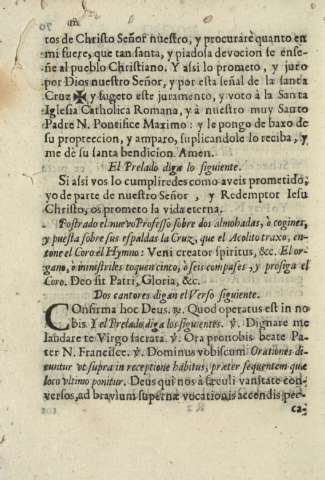 tos de Christo Señor nuestro, y procurarè quanto en
mi fuere, que tan santa, y piadosa devocion se ense-
ñe al pueblo Christiano. Y assi lo prometo, y juro
por Dios nuestro Señor, y por esta señal de la santa
Cruz ✠ y sugeto este juramento, y voto à la Santa
Iglesia Catholica Romana, y à nuestro muy Santo
Padre N. Pontifice Maximo: y le pongo de baxo de
su propteccion, y amparo, suplicandole lo reciba, y
me dè su santa bendicion. Amen.
El Prelado diga lo siguiente.
Si assi vos lo cumpliredes como aveis prometido,
yo de parte de nuestro Señor, y Redemptor Iesu
Christo, os prometo la vida eterna.
Postrado el nuevo Professo sobre dos almohadas, ò cogines,
y puesta sobre sus espaldas la Cruz, que el Acolito traxo, en-
tone el Coro el Hymno: Veni creator spiritus, &c. El or-
gano, ò ministriles toquen cinco, ò seis compases, y prosiga el
Coro. Deo sit Patri, Gloria, &c.
Dos cantores digan el Verso siguiente.
COnfirma hoc Deus. ℟. Quod operatus est in no-
bis. Y el Prelado diga los siguientes. ℣. Dignare me
laudare te Virgo sacrata. ℣. Ora pro nobis beate Pa-
ter N. Francisce. ℣. Dominus vobiscum Orationes di-
cuntur ut supra in receptione habitus, præter sequentem quæ
loco ultimo ponitur. Deus qui nos à sæculi vanitate con-
versos, ad bravium supernæ vocationis accendis pec-
ca-